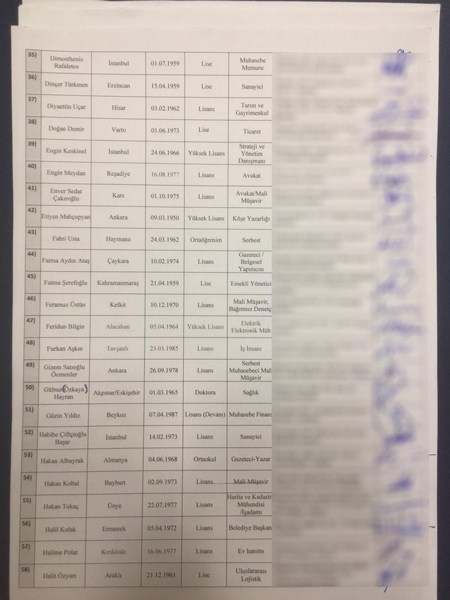 35) Dimosthenis Rafaletos İstanbul 01.07.1959 Lise Muhasebe Memuru
36) Dinçer Türkmen Erzincan 15.04.1959 Lise Sanayici
37) Diyaettin Uçar Hisar 03.02.1962 Lisans Tarım ve Gayrimenkul
38) Doğan Demir Varto 01.06.1973 Lise Ticaret
39) Engin Keskinel İstanbul 24.06.1966 Yüksek Lisans Strateji ve Yönetim Danışmanı
40) Engin Meydan Reşadiye 16.08.1977 Lisans Avukat
41) Enver Sedat Çakıroğlu Kars 01.10.1975 Lisans Avukat/Mali Müşavir
42) Etiyen Mahçupyan Ankara 09.03.1950 Yüksek Lisans Köşe Yazarlığı
43) Fahri Usta Haymana 24.03.1962 Ortaöğrenim Serbest
44) Fatma Aydın Ataş Çaykara 10.02.1974 Lisans Gazeteci / Belgesel Yapımcısı
45) Fatma Şerefoğlu Kahramanmaraş 21.04.1959 Lise Emekli Yönetici
46) Feramuz Üstün Kelkit 10.12.1970 Lisans Mali Müşavir, Bağımsız Denetçi
47) Feridun Bilgin Alucahan 05.04.1964 Yüksek Lisans Elektrik Elektronik Müh
48) Furkan Aşkın Tavşanlı 23.03.1985 Lisans İş İnsanı
49) Gizem Satıoğlu Ankara 26.09.1978 Lisans Serbest Muhasebeci Mali Müşavir
50) Gülnur(Özkaya) Hayran Akpınar/Eskişehir 01.03.1965 Doktora Sağlık
51) Gürin Yıldız Beykoz 07.04.1987 Lisans (Devam) Muhasebe Finans
52) Habibe Çiftçioğlu Başar İstanbul 14.02.1973 Lisans Sanayici
53) Hakan Albayrak Almanya 04.06.1968 Ortaokul Gazeteci-Yazar
54) Hakan Kobal Bayburt 02.09.1973 Lisans Mali Müşavir
55) Hakan Tokaç Ünye 22.07.1977 Lisans Harita ve Kadastro Mühendisi /İşadamı
56) Halil Kulak Ermenek 05.04.1972 Lisans Belediye Başkan
57) Halime Polat Kırıkkale 16.06.1977 Lisans Ev hanımı
58) Halit Özyurt Araklı 21.12.1961 Lise Uluslararası Lojistik